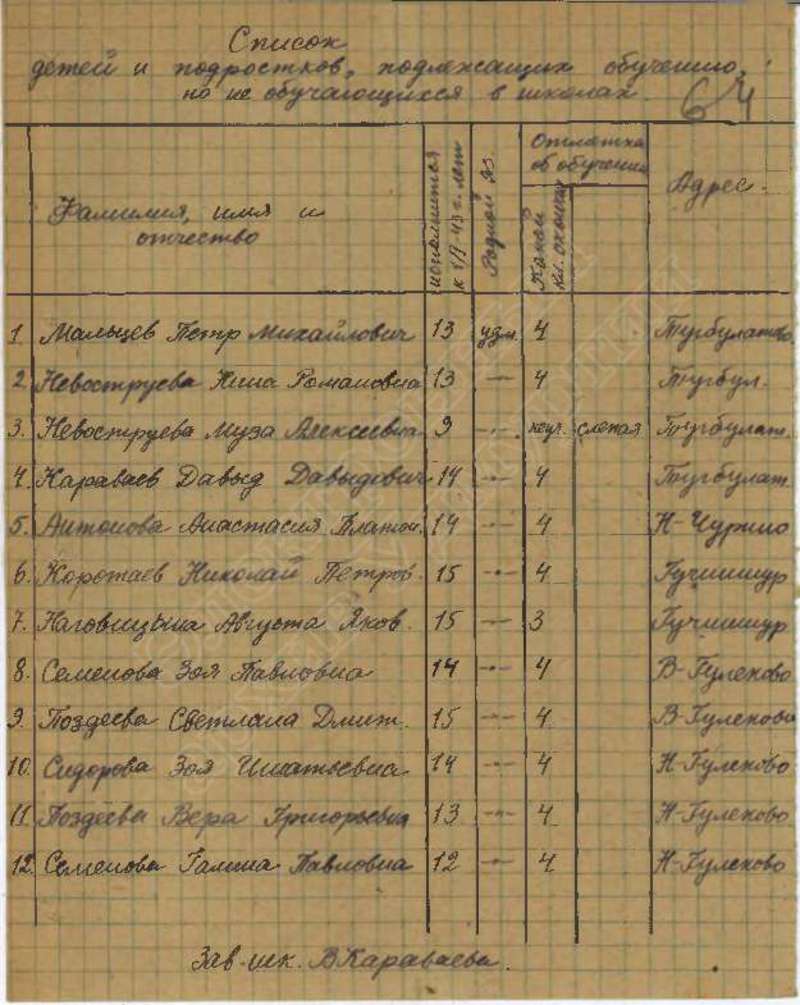 Список
детей и подростков, подлежащих обучению,
но не обучающихся в школах.
64
Фамилия, имя и отчество
исполнится к 1/I-43 г. лет
Родной яз.
Отметка об обучении
Какой кл. окончил
Адрес.
1 Мальцев Петр Михайлович 13 удм. 4
2. Невоструева Нина Романовна 13 —·— 4 Тугбул.
3. Невоструева Муза Алексеевна 9 —·— неуч. слепая Тугбулат.
4. Караваев Давыд Давыдович 14 —·— 4 Тугбулат.
5. Антонова Анастасия Платон. 14 —·— 4 Н-Чурино
6. Коротаев Николай Петров. 15 —·— 4 Гучиншур
7. Наговицына Августа Яков. 15 —·— 3 Гучиншур
8. Семенова Зоя Павловна 14 —·— 4 В-Гулеково
9. Поздеева Светлана Дмит. 15 —·— 4 В-Гулеково
10. Сидорова Зоя Игнатьевна 14 —·— 4 Н-Гулеково
11. Поздеева Вера Григорьевна 13 —·— 4 Н-Гулеково
12. Семенова Галина Павловна 12 —·— 4 Н-Гулеково
Зав. шк. ВКараваева.